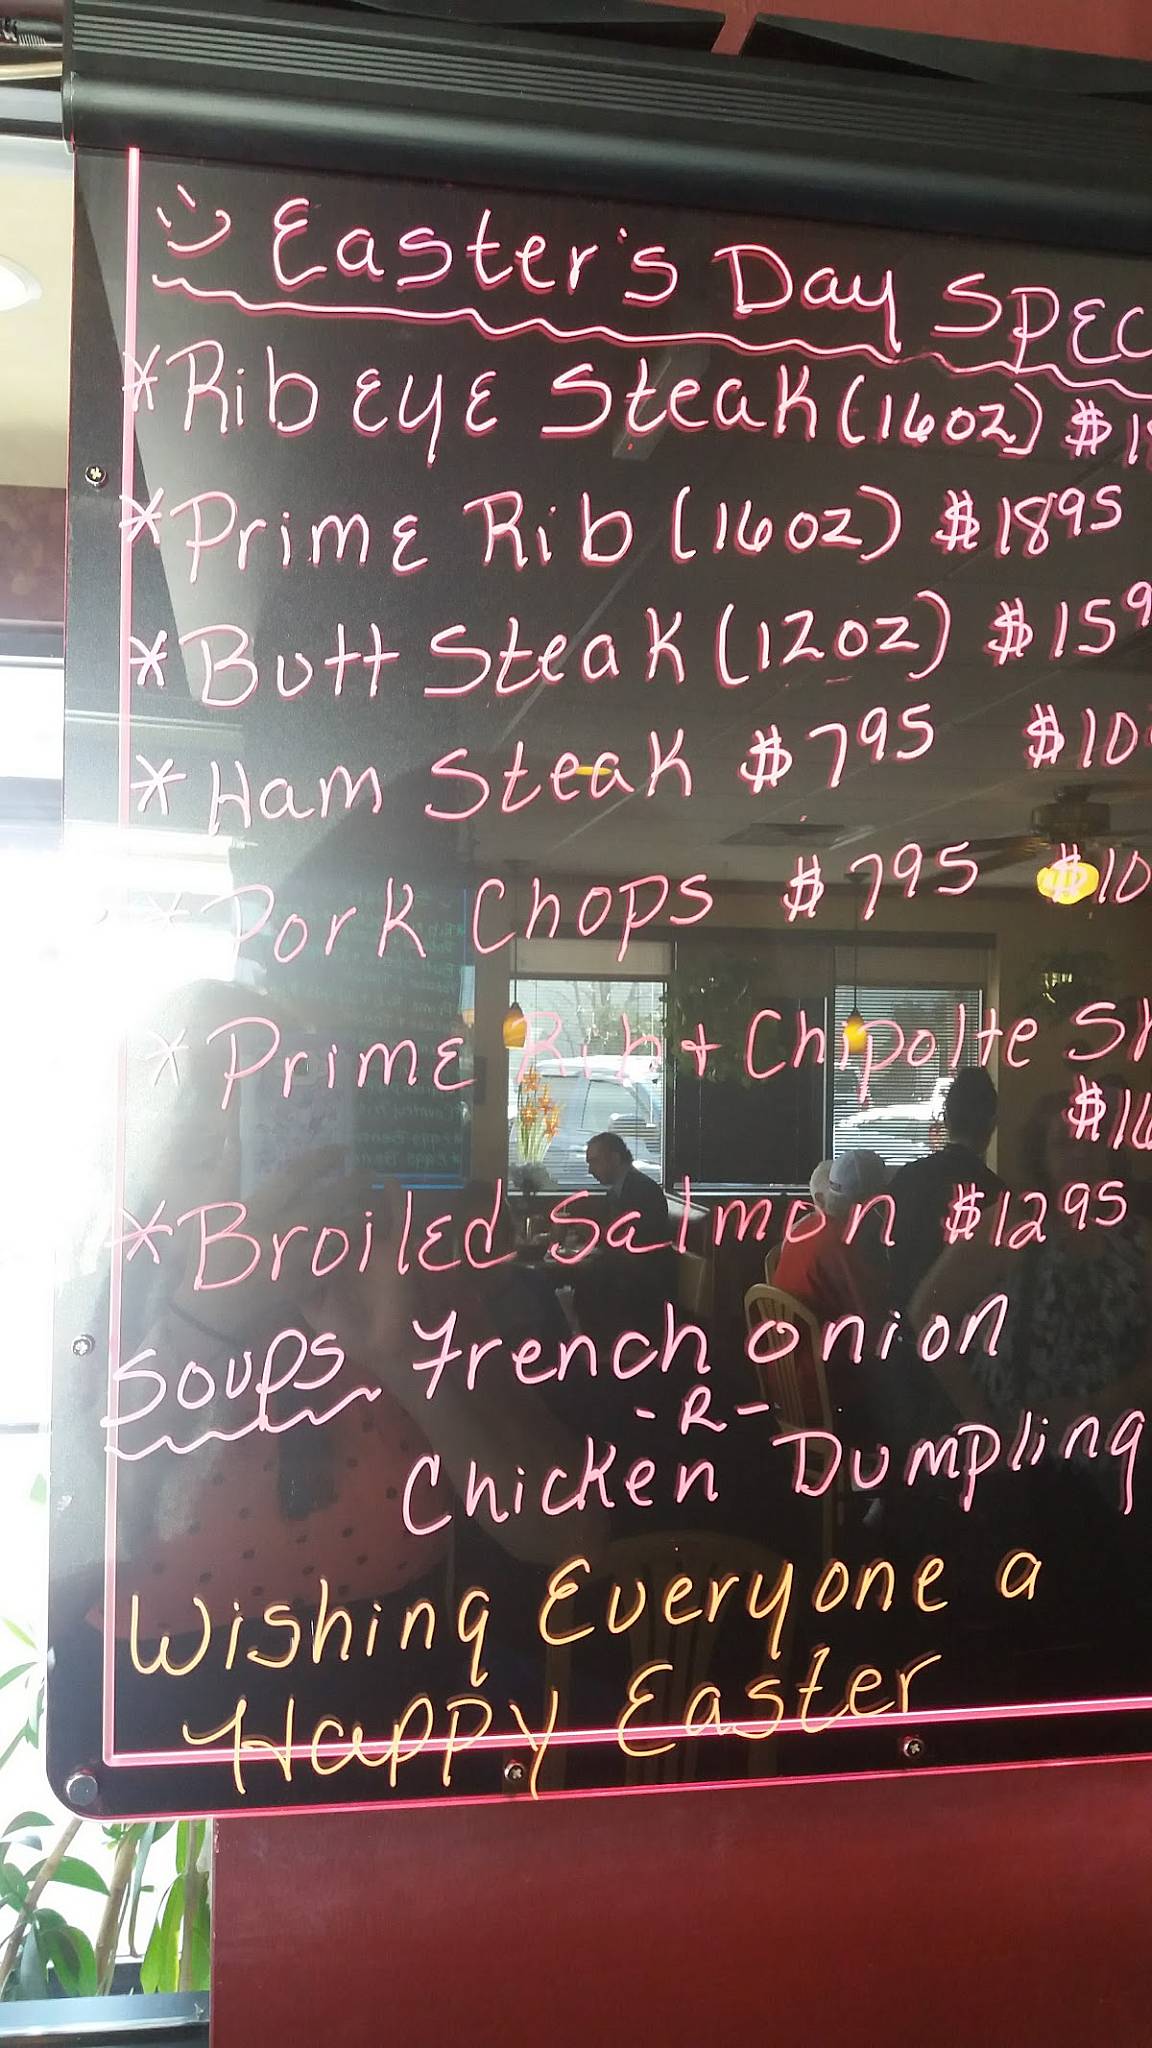 Easter's Day SPEC
*Rib EYE Steak (16oz) $1
*PrimE Rib (16oz) $1895
*Butt Steak (12oz) $159
*Ham Steak $795 $10
*Pork Chops $795 $10
*PrimE Rib + Chipolte Sh
$16
*Broiled Salmon $1295
Soups French onion
-R-
Chicken Dumpling
Wishing Everyone a
Happy Easter